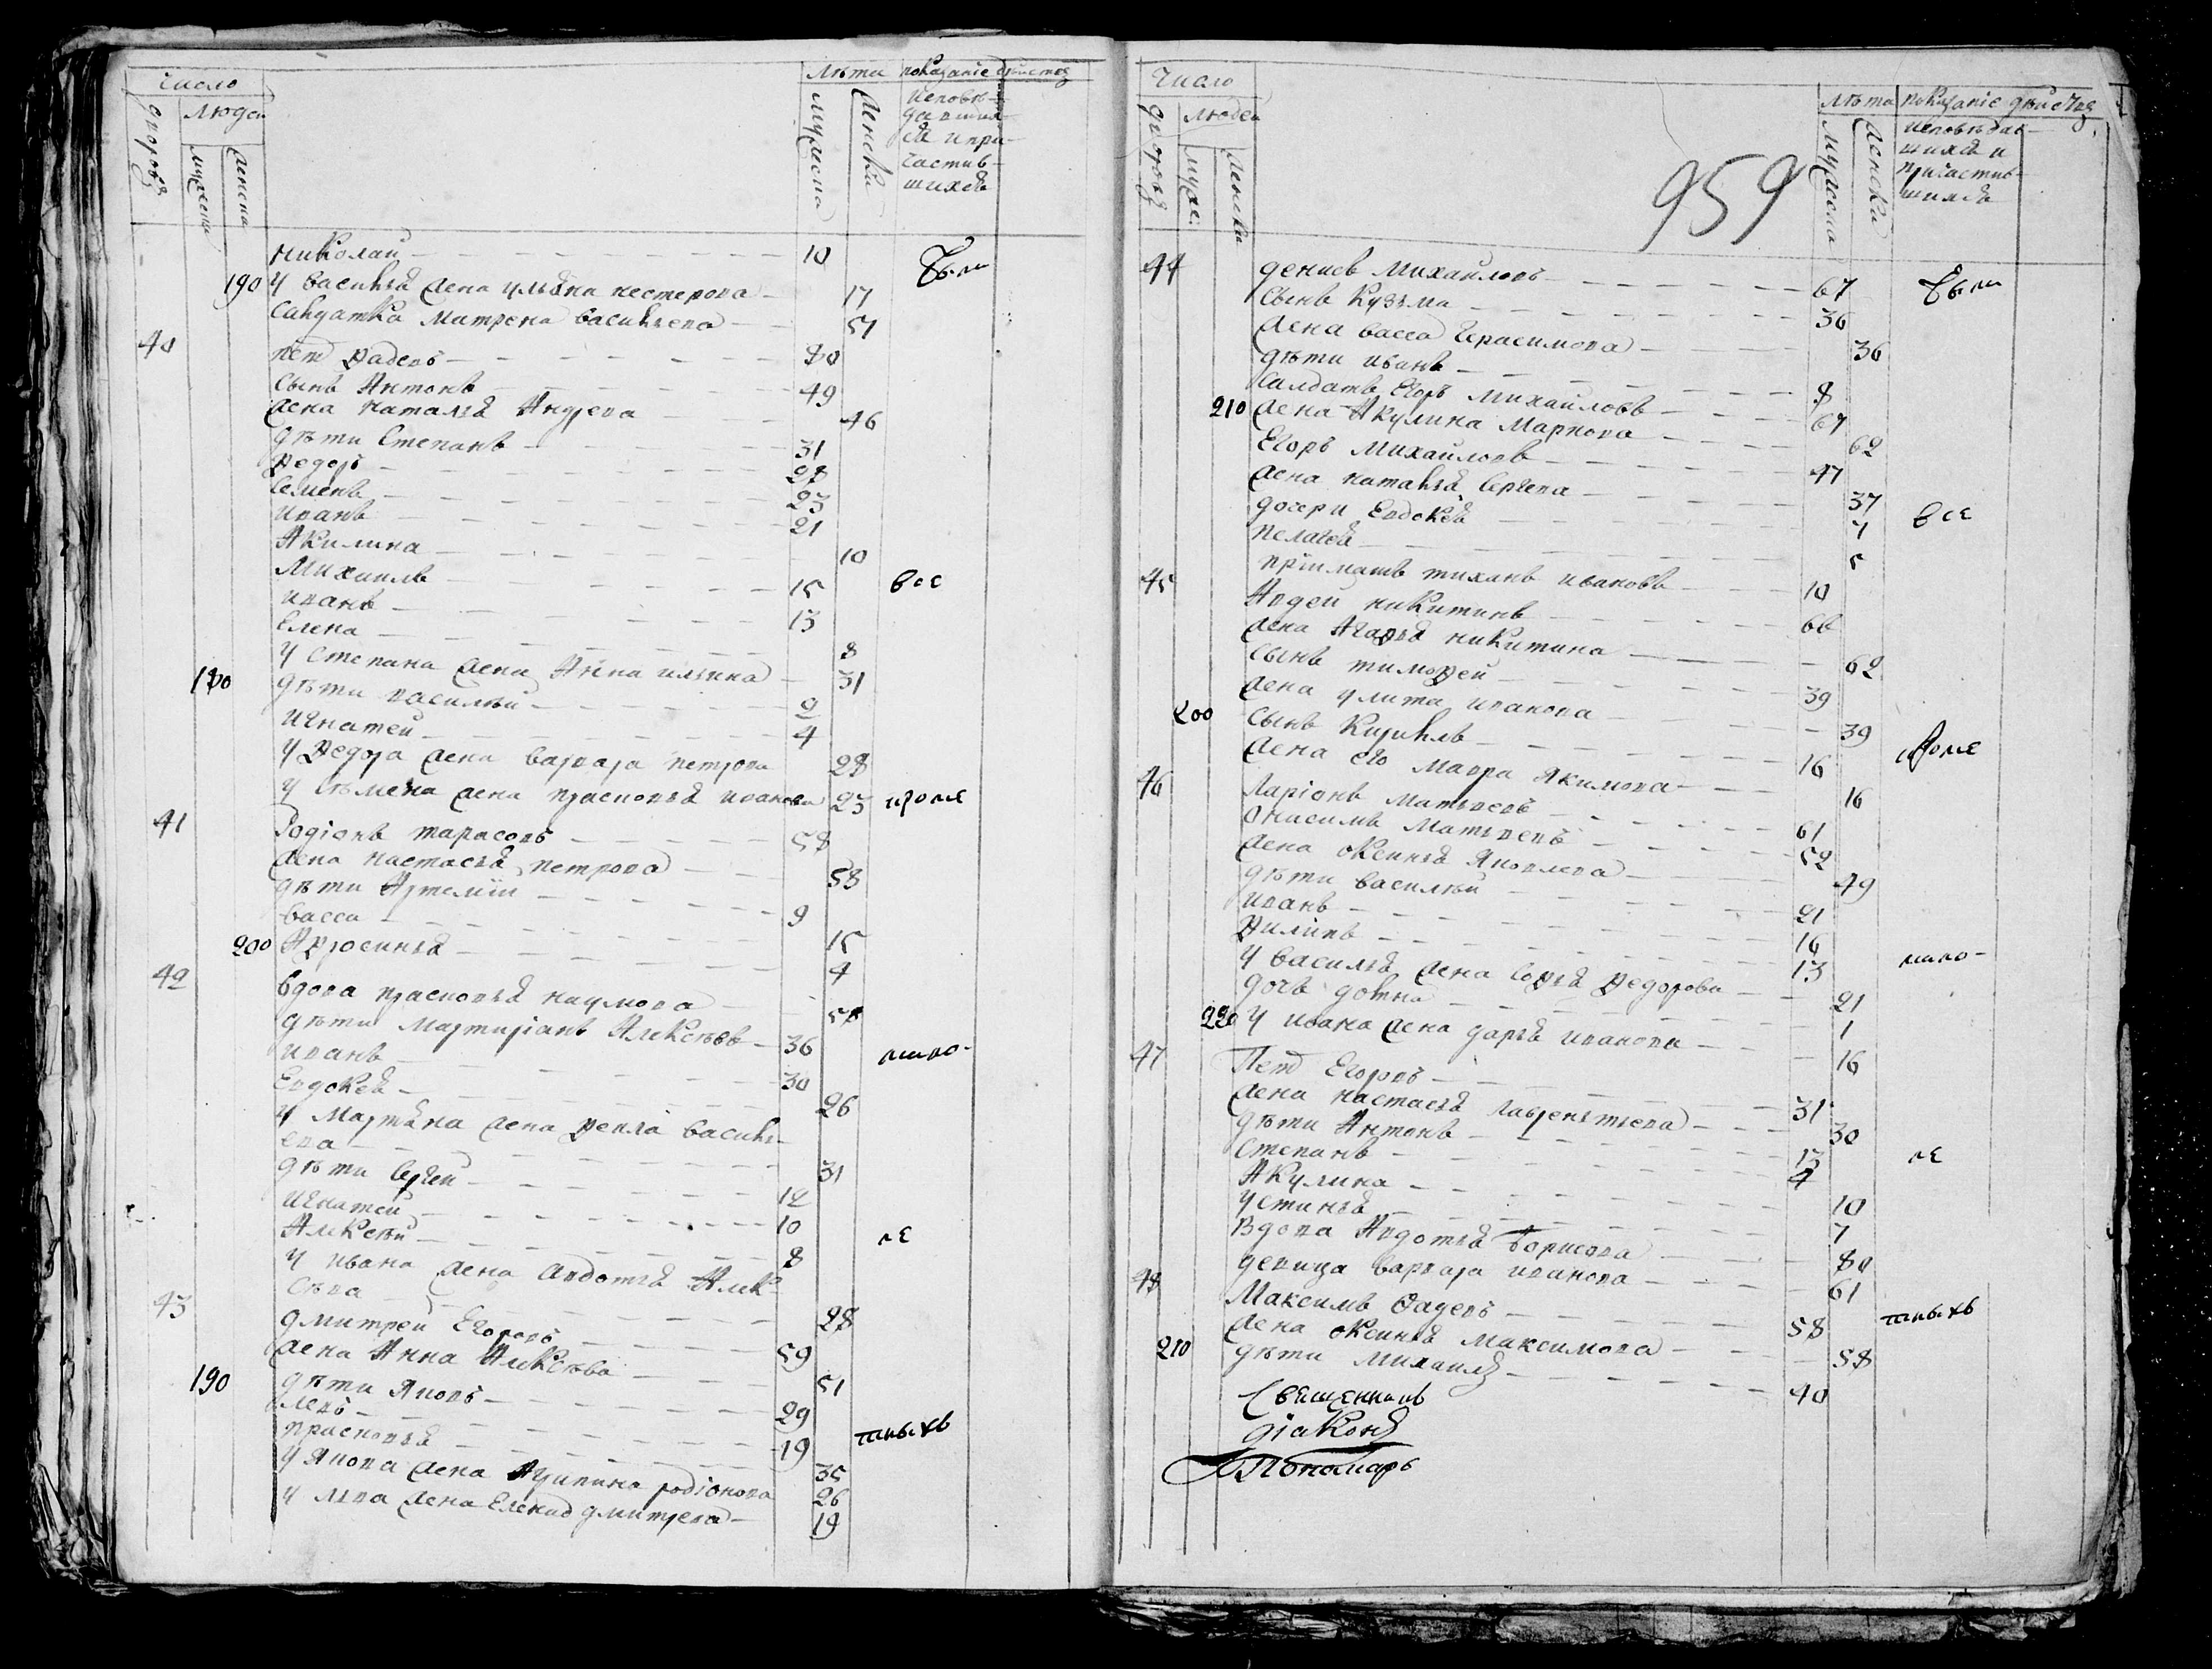 Число
Лѣта показание действ
дворовъ
людеи
мужески
женска
мужеска
женски
исповѣ-
давших-
ся и при-
частив-
шихся
николаи 10
были
190 у василья жена ульяна нестерова 17
салдатка матрена васильева 51
40
петр фадеевъ 80
сынъ Антонъ 49
жена наталья Андреева 46
дѣти Степанъ 31
федоръ 28
семенъ 23
иванъ 21
Акилина 10
Михаилъ 15
все
иванъ 13
елена 8
у степана жена Анна ильина 31
180
дѣти василеи 9
игнатеи 4
у федора жена варвара петрова 28
у сѣмена жена прасковья иванова 25
кроме
41
Родiонъ тарасовъ 58
жена настасья петрова 58
дѣти Артемiи 9
васса 15
200 Афросинья 4
42
вдова прасковья наумова 58
дѣти мартирiанъ Алексѣевъ 36
иванъ 30
мало-
Евдокея 26
у Мартяна жена фекла василь-
ева 31
дѣти сергеи 12
игнатеи 10
Алексѣи 8
ле
у ивана жена авдотья Алек-
сѣва 28
43
дмитреи Егоровъ 59
жена Анна Алексѣева 51
190
дѣти Яковъ 29
левъ 19
прасковья 35
тныхъ
у Якова жена Агрипина родiонова 26
у лва жена Елена дмитрева 19
Число
Лѣта показанiе действ
959
дворовъ
людеи
мужес
женски
мужеска
женски
исповѣдав-
шихся и
причастив-
шихся
44
денисъ михаиловъ 67
были
сынъ кузьма 36
жена васса герасимова 36
дѣти иванъ 8
салдатъ Егоръ михаиловъ 67
210 жена Акулина маркова 62
Егоръ михаиловъ 47
жена наталья сергева 37
дочери Евдокея 7
все
пелагея 5
прiимышъ тиханъ ивановъ 10
45
Авдеи никитинъ 66
жена Агафья никитина 62
сынъ тимофеи 39
жена улита иванова 39
200
сынъ кирилъ 16
кроме
жена его мавра Якимова 16
46
Ларiонъ матвеевъ 61
Онисимъ матвеевъ 52
жена оксинья Яковлева 49
дѣти василеи 21
иванъ 16
филипъ 13
у василья жена софья федорова 21
мало-
дочь домна 1
220 у ивана жена дарья иванова 16
47
Петр Егоровъ 31
жена настасья лаврентьева 30
дѣти Антонъ 13
степанъ 4
ле
Акулина 10
устинья 7
вдова Авдотья борисова 80
девица варвара иванова 61
48
максимъ Фадеевъ 58
жена оксинья максимова 58
тныхъ
210
дѣти михаилъ 40
Священникъ
дiаконъ
Пономарь